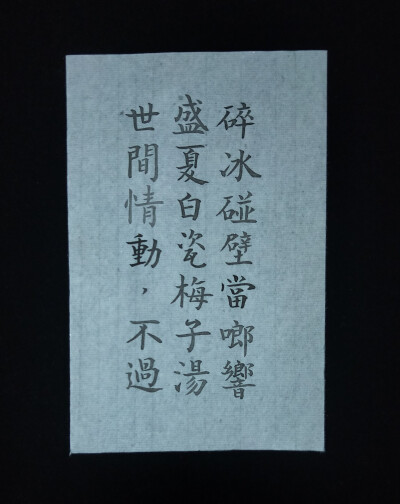 世間情動，不過
盛夏白瓷梅子湯
碎冰碰壁當啷響